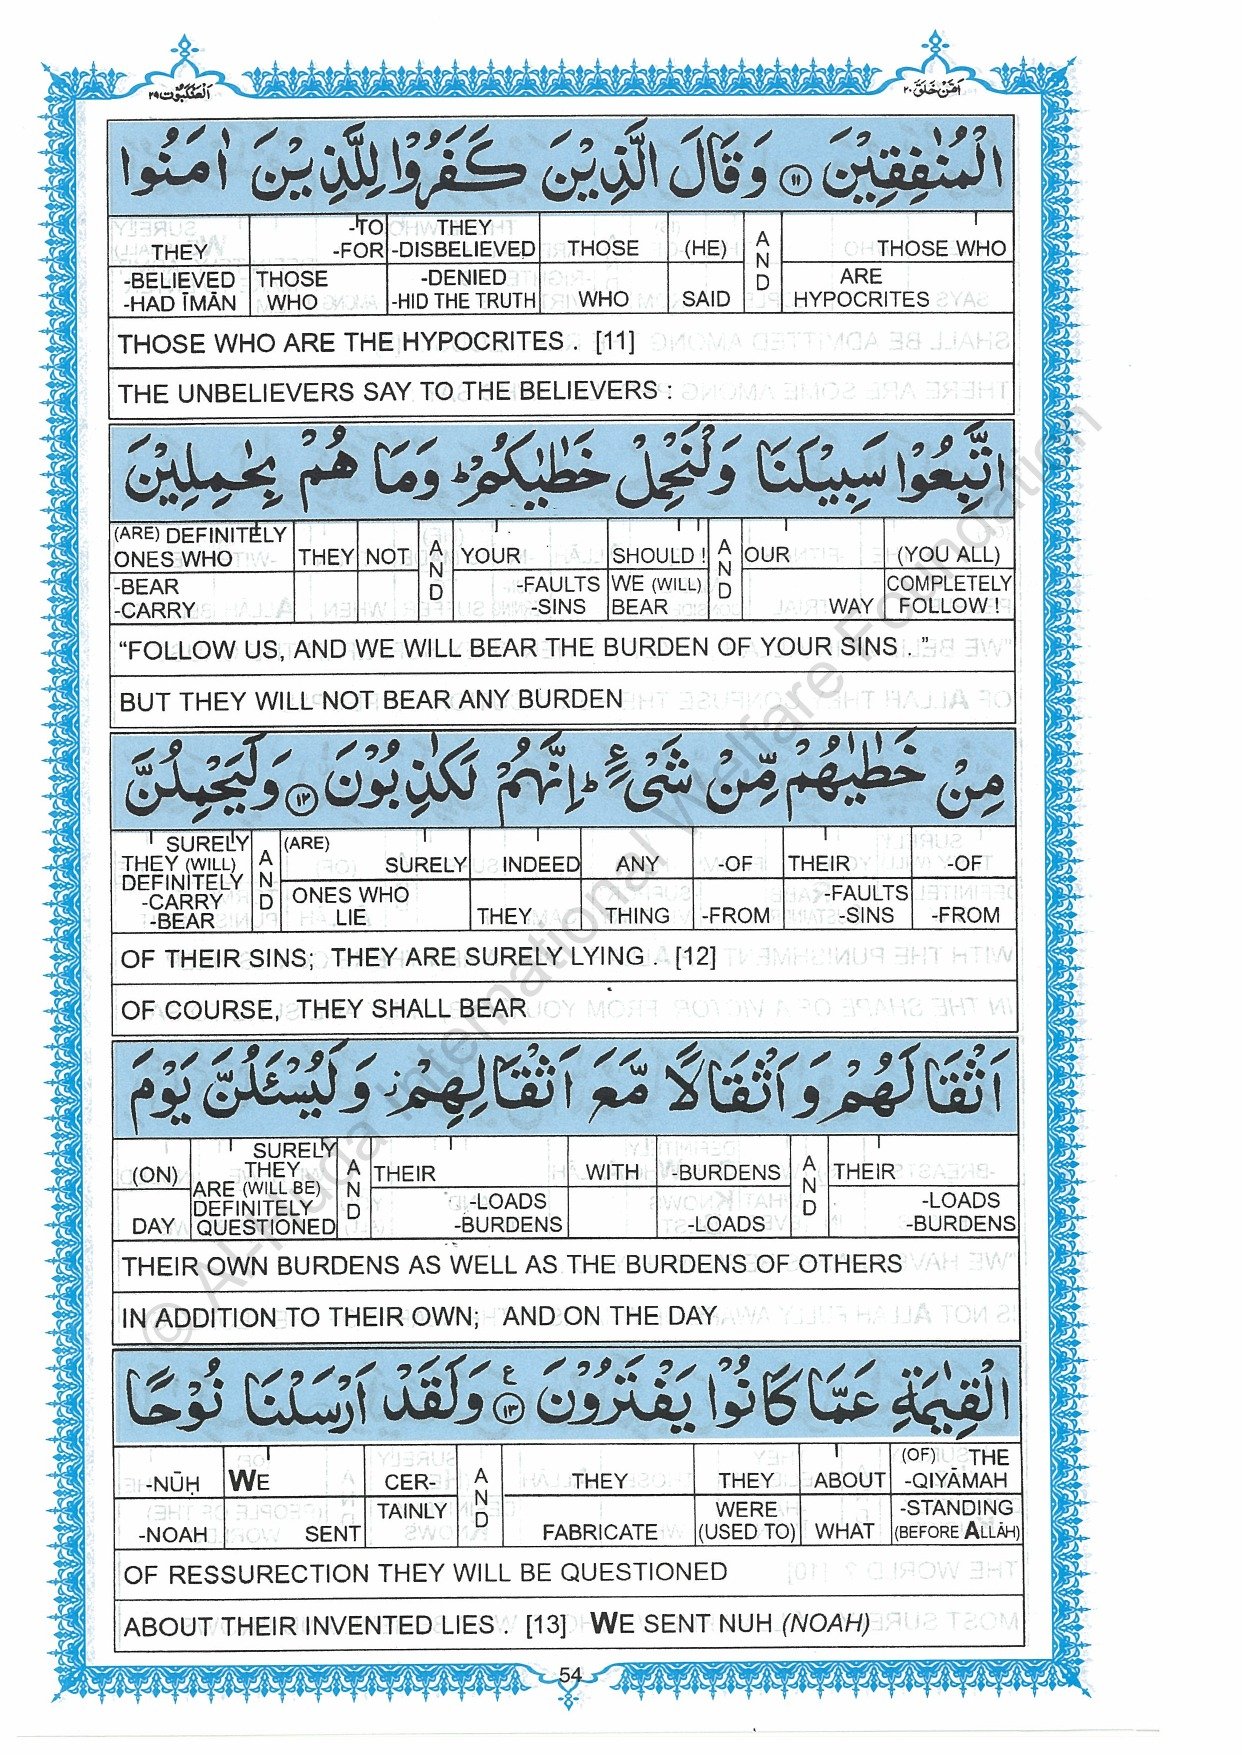 العنكبوت ٢٩
امن خلق ٢٠
الْمُنٰفِقِيْنَ ۝۱۱ وَقَالَ الَّذِيْنَ كَفَرُوْا لِلَّذِيْنَ اٰمَنُوا
THEY -TO -FOR THEY -DISBELIEVED THOSE (HE) AND THOSE WHO
-BELIEVED -HAD ĪMĀN THOSE WHO -DENIED -HID THE TRUTH WHO SAID ARE HYPOCRITES
THOSE WHO ARE THE HYPOCRITES . [11]
THE UNBELIEVERS SAY TO THE BELIEVERS :
اتَّبِعُوْا سَبِيْلَنَا وَلْنَحْمِلْ خَطٰيٰكُمْ ؕ وَمَا هُمْ بِحٰمِلِيْنَ
(ARE) DEFINITELY ONES WHO THEY NOT AND YOUR SHOULD ! AND OUR (YOU ALL)
-BEAR -CARRY -FAULTS -SINS WE (WILL) BEAR WAY COMPLETELY FOLLOW !
“FOLLOW US, AND WE WILL BEAR THE BURDEN OF YOUR SINS . ”
BUT THEY WILL NOT BEAR ANY BURDEN
مِنْ خَطٰيٰهُمْ مِّنْ شَيْءٍ ؕ اِنَّهُمْ لَكٰذِبُوْنَ ۝۱۲ وَلَيَحْمِلُنَّ
SURELY THEY (WILL) DEFINITELY -CARRY -BEAR AND (ARE) SURELY INDEED ANY -OF THEIR -OF
ONES WHO LIE THEY THING -FROM -FAULTS -SINS -FROM
OF THEIR SINS; THEY ARE SURELY LYING . [12]
OF COURSE, THEY SHALL BEAR
اَثْقَالَهُمْ وَاَثْقَالًا مَّعَ اَثْقَالِهِمْ ؗ وَلَيُسْـَٔلُنَّ يَوْمَ
(ON) SURELY THEY ARE (WILL BE) DEFINITELY QUESTIONED AND THEIR WITH -BURDENS AND THEIR
DAY -LOADS -BURDENS -LOADS -LOADS -BURDENS
THEIR OWN BURDENS AS WELL AS THE BURDENS OF OTHERS
IN ADDITION TO THEIR OWN; AND ON THE DAY
الْقِيٰمَةِ عَمَّا كَانُوْا يَفْتَرُوْنَ ۝۱۳ ع وَلَقَدْ اَرْسَلْنَا نُوْحًا
-NŪḤ WE CER- AND THEY THEY ABOUT (OF) THE -QIYĀMAH
-NOAH SENT TAINLY FABRICATE WERE (USED TO) WHAT -STANDING (BEFORE ALLĀH)
OF RESSURECTION THEY WILL BE QUESTIONED
ABOUT THEIR INVENTED LIES . [13] WE SENT NUH (NOAH)
54
© Al-Huda International Welfare Foundation